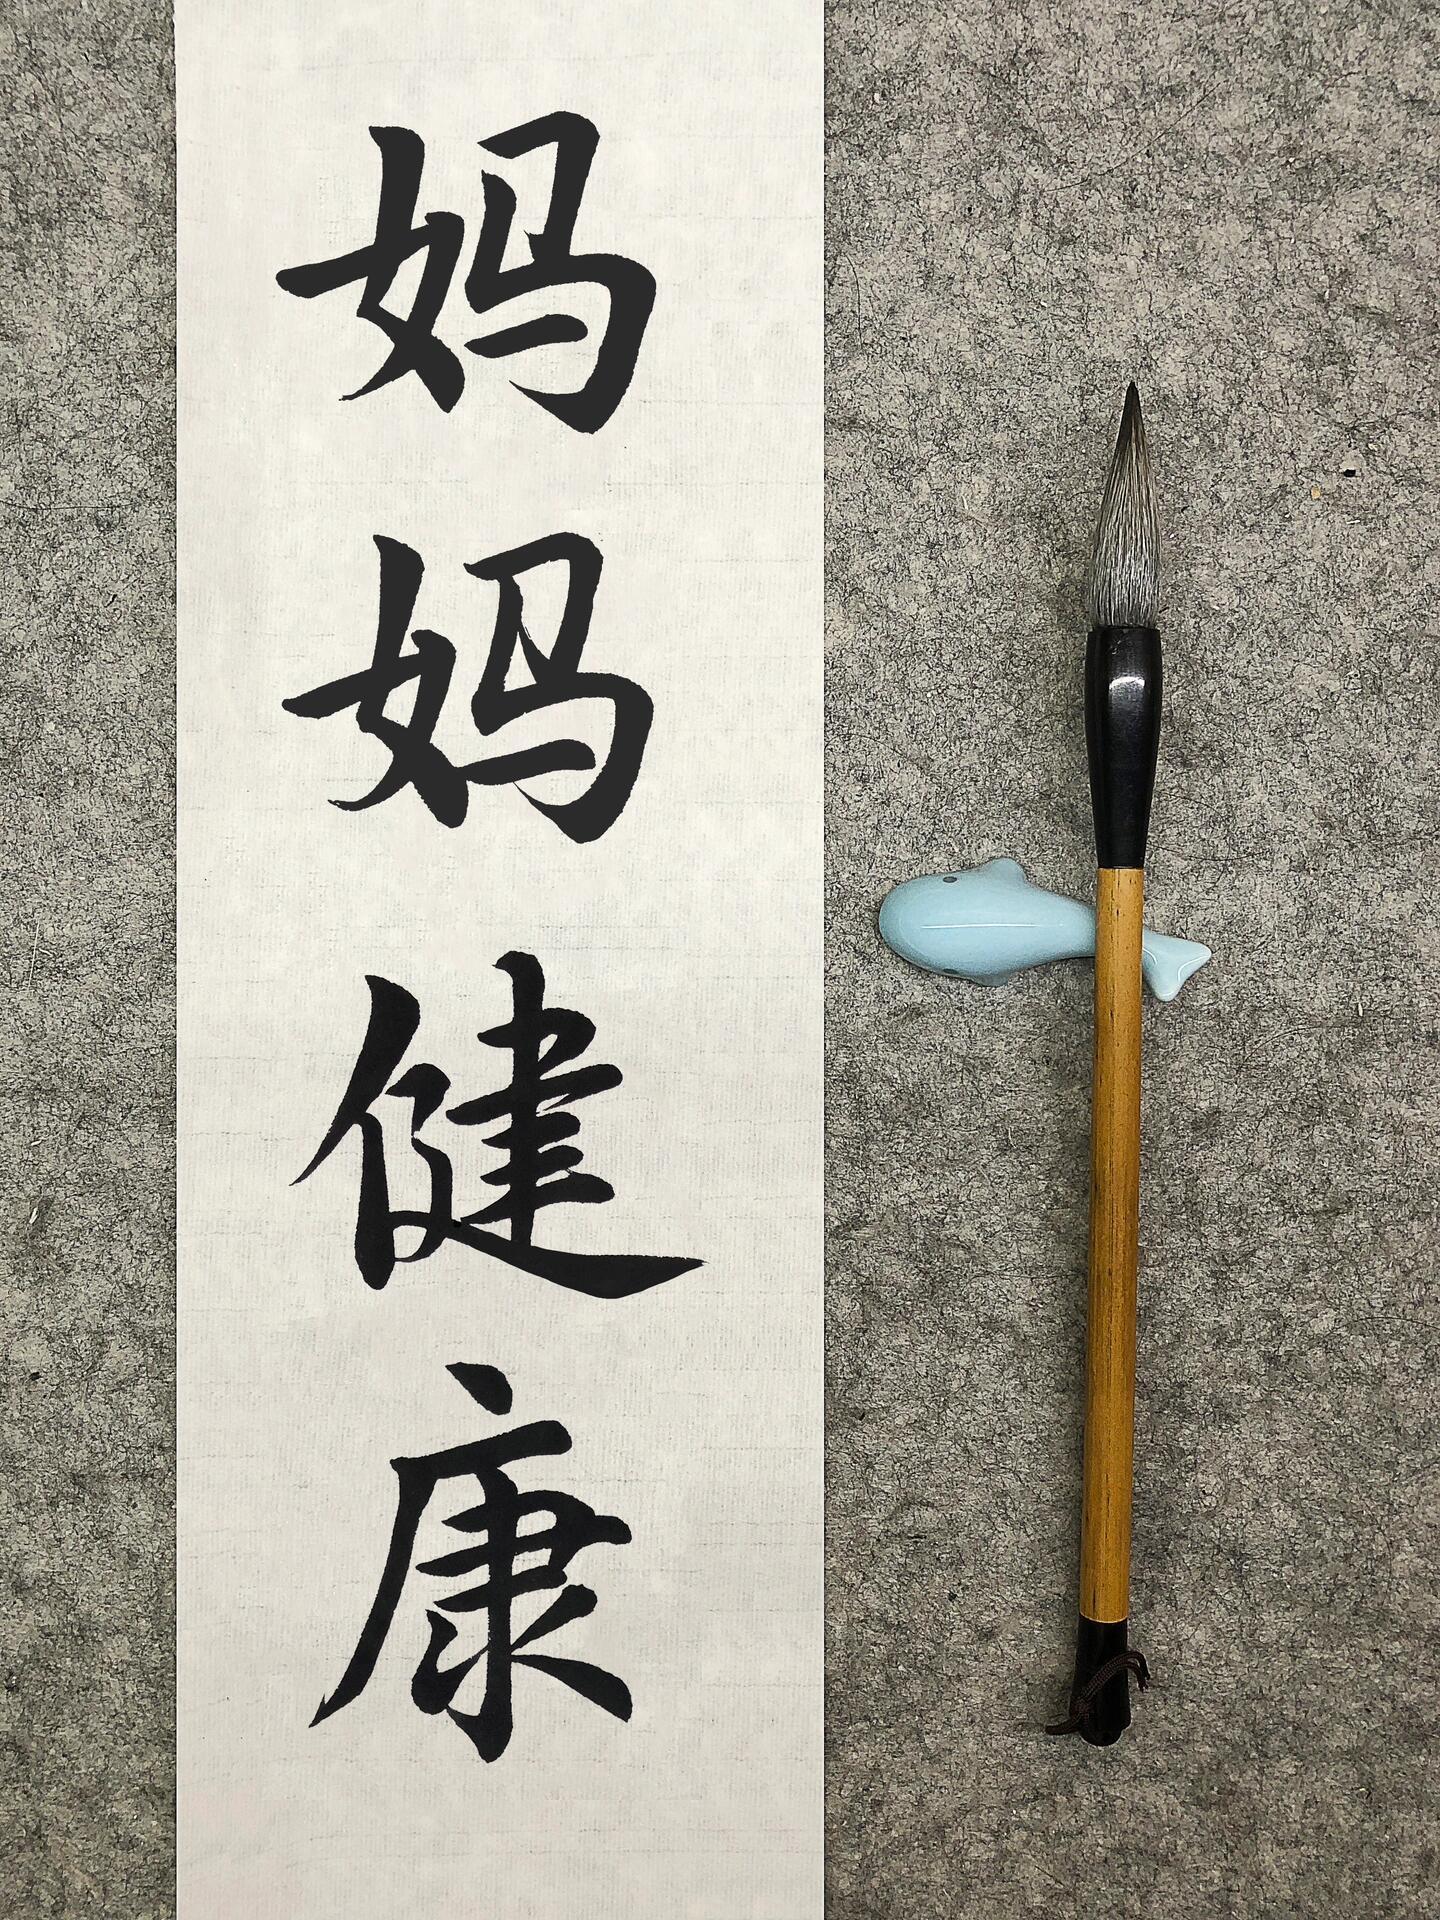 妈妈健康